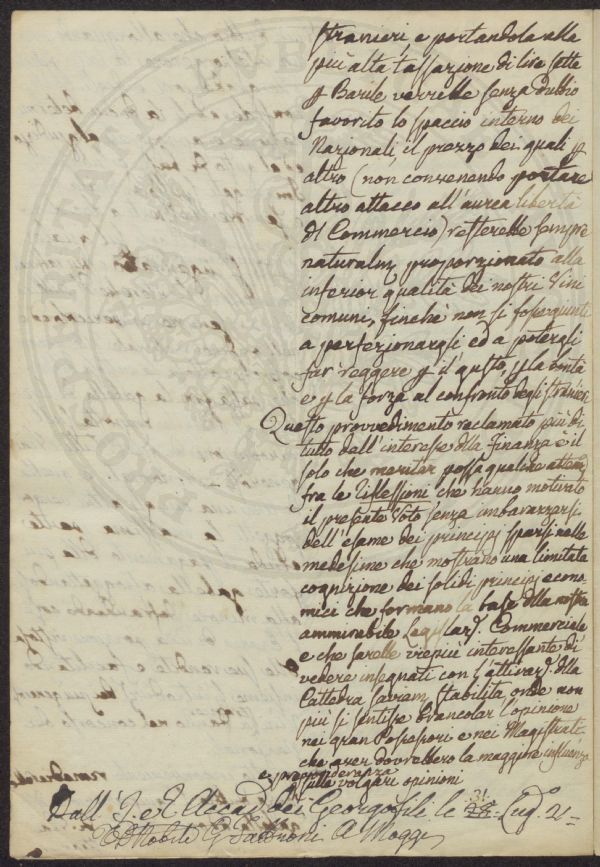 stranieri e portandola alla
più alta tassazione di lire sette
p Barile verrebbe senza dubbio
favorito lo spaccio interno dei
Nazionali il prezzo dei quali p
altro (non convenendo portare
altro attacco all'aurea libertà
di Commercio) resterebbe sempre
naturalm. proporzionato alla
inferior qualità dei nostri Vini
comuni, finchè non si fosse giunti
a perfezionarsi ed a potergli
far reggere p il gusto, p la bontà
e p la forza al confronto degli stranieri
Questo provvedimento reclamato più di
tutto dell'interesse dlla Finanza e il
solo che meritar possa qualche attenz.
fra le riflessioni che hanno motivato
il presente Voto senza imbarazzarsi
dell'esame dei principj sparsi nelle
medesime che mostrano una limitata
cognizione dei solidi principj econo-
mici che formano la base dlla nostra
ammirabile Legislaz. Commerciale
e che sarebbe viepiù interessante di
vedere insegnati con l'attivaz. dlla
Cattedra savam. stabilita, onde non
più si sentisse brancolar l'opinione
nei gran Possessori e nei Magistrati
che aver dovrebbero la maggiore influenza
e preponderanza
sulle volgari opinioni
Dall' I. e R. Accad. dei Georgofili le 28 31 Lug.
A Moggi
PROSPERITATI